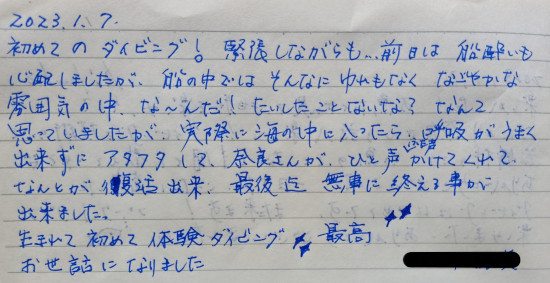 2023.1.7.
初めての ダイビング! 緊張しながらも…前日は 船酔いも
心配しましたが、船の中では そんなに ゆれもなく なごやかな
雰囲気の中、な〜んだ! たいしたことないな? なんて
思っていましたが 実際に海の中に入ったら、呼吸がうまく
出来ずに アタフタして、奈良さんが、ひと声 かけてくれて、
なんとか 復活 出来、最後迄 無事に 終える事が
出来ました。
生まれて 初めて 体験ダイビング 最高
お世話に なりました